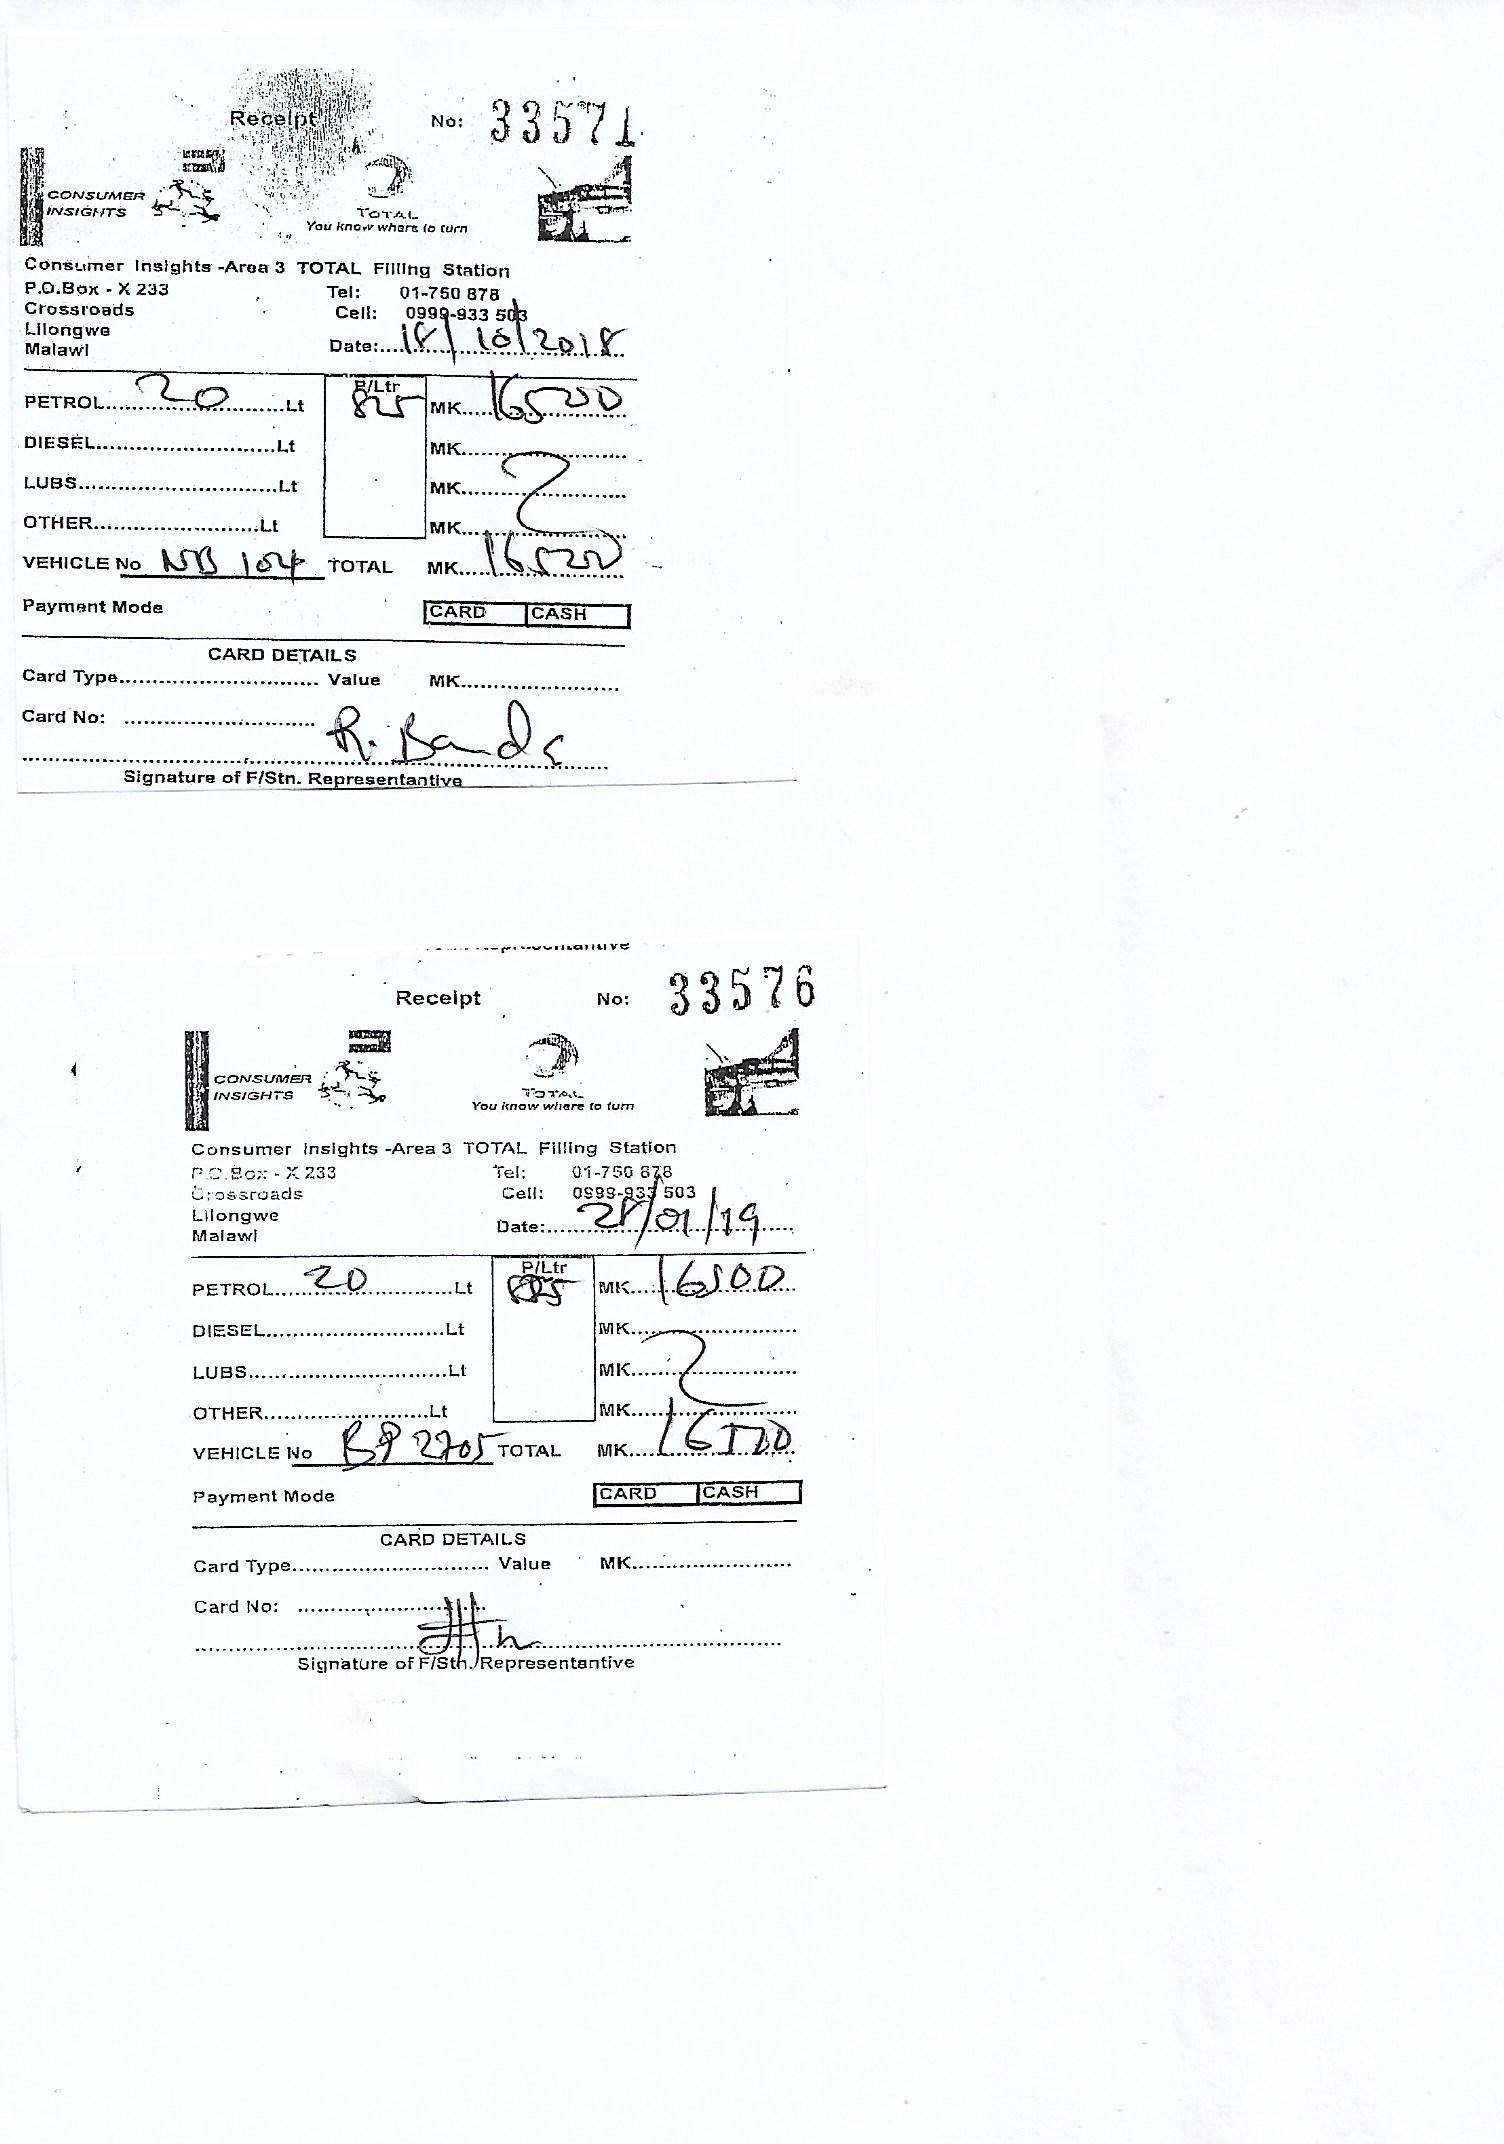 Receipt No: 33571
CONSUMER
INSIGHTS
TOTAL
You know where to turn
Consumer Insights -Area 3 TOTAL Filling Station
P.O.Box - X 233 Tel: 01-750 878
Crossroads Cell: 0999-933 503
Lilongwe
Malawi Date:....18/10/2018
P/Ltr
PETROL....20....Lt 825 MK....16500
DIESEL....Lt MK....
LUBS....Lt MK....
OTHER....Lt MK....
VEHICLE No NB 104 TOTAL MK....16500
Payment Mode CARD CASH
CARD DETAILS
Card Type.... Value MK....
Card No: ....
R. Banda
Signature of F/Stn. Representantive
Receipt No: 33576
CONSUMER
INSIGHTS
TOTAL
You know where to turn
Consumer Insights -Area 3 TOTAL Filling Station
P.O.Box - X 233 Tel: 01-750 878
Crossroads Cell: 0999-933 503
Lilongwe
Malawi Date:....28/01/19
P/Ltr
PETROL....20....Lt 825 MK....16500
DIESEL....Lt MK....
LUBS....Lt MK....
OTHER....Lt MK....
VEHICLE No BP 2705 TOTAL MK....16500
Payment Mode CARD CASH
CARD DETAILS
Card Type.... Value MK....
Card No: ....
Signature of F/Stn. Representantive